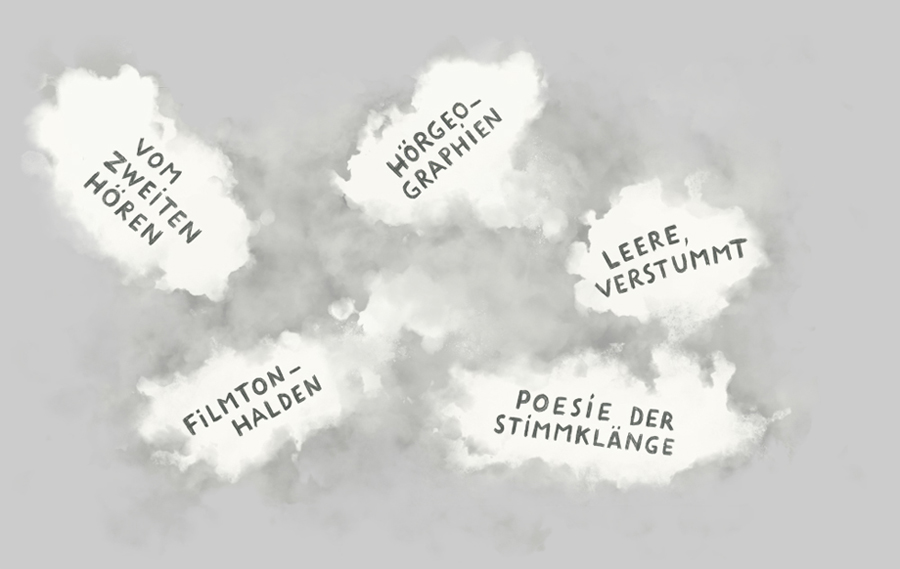 VOM
ZWEiTEN
HÖREN
HÖRGEO-
GRAPHiEN
LEERE,
VERSTUMMT
FiLMTON-
HALDEN
POESiE DER
STiMMKLÄNGE